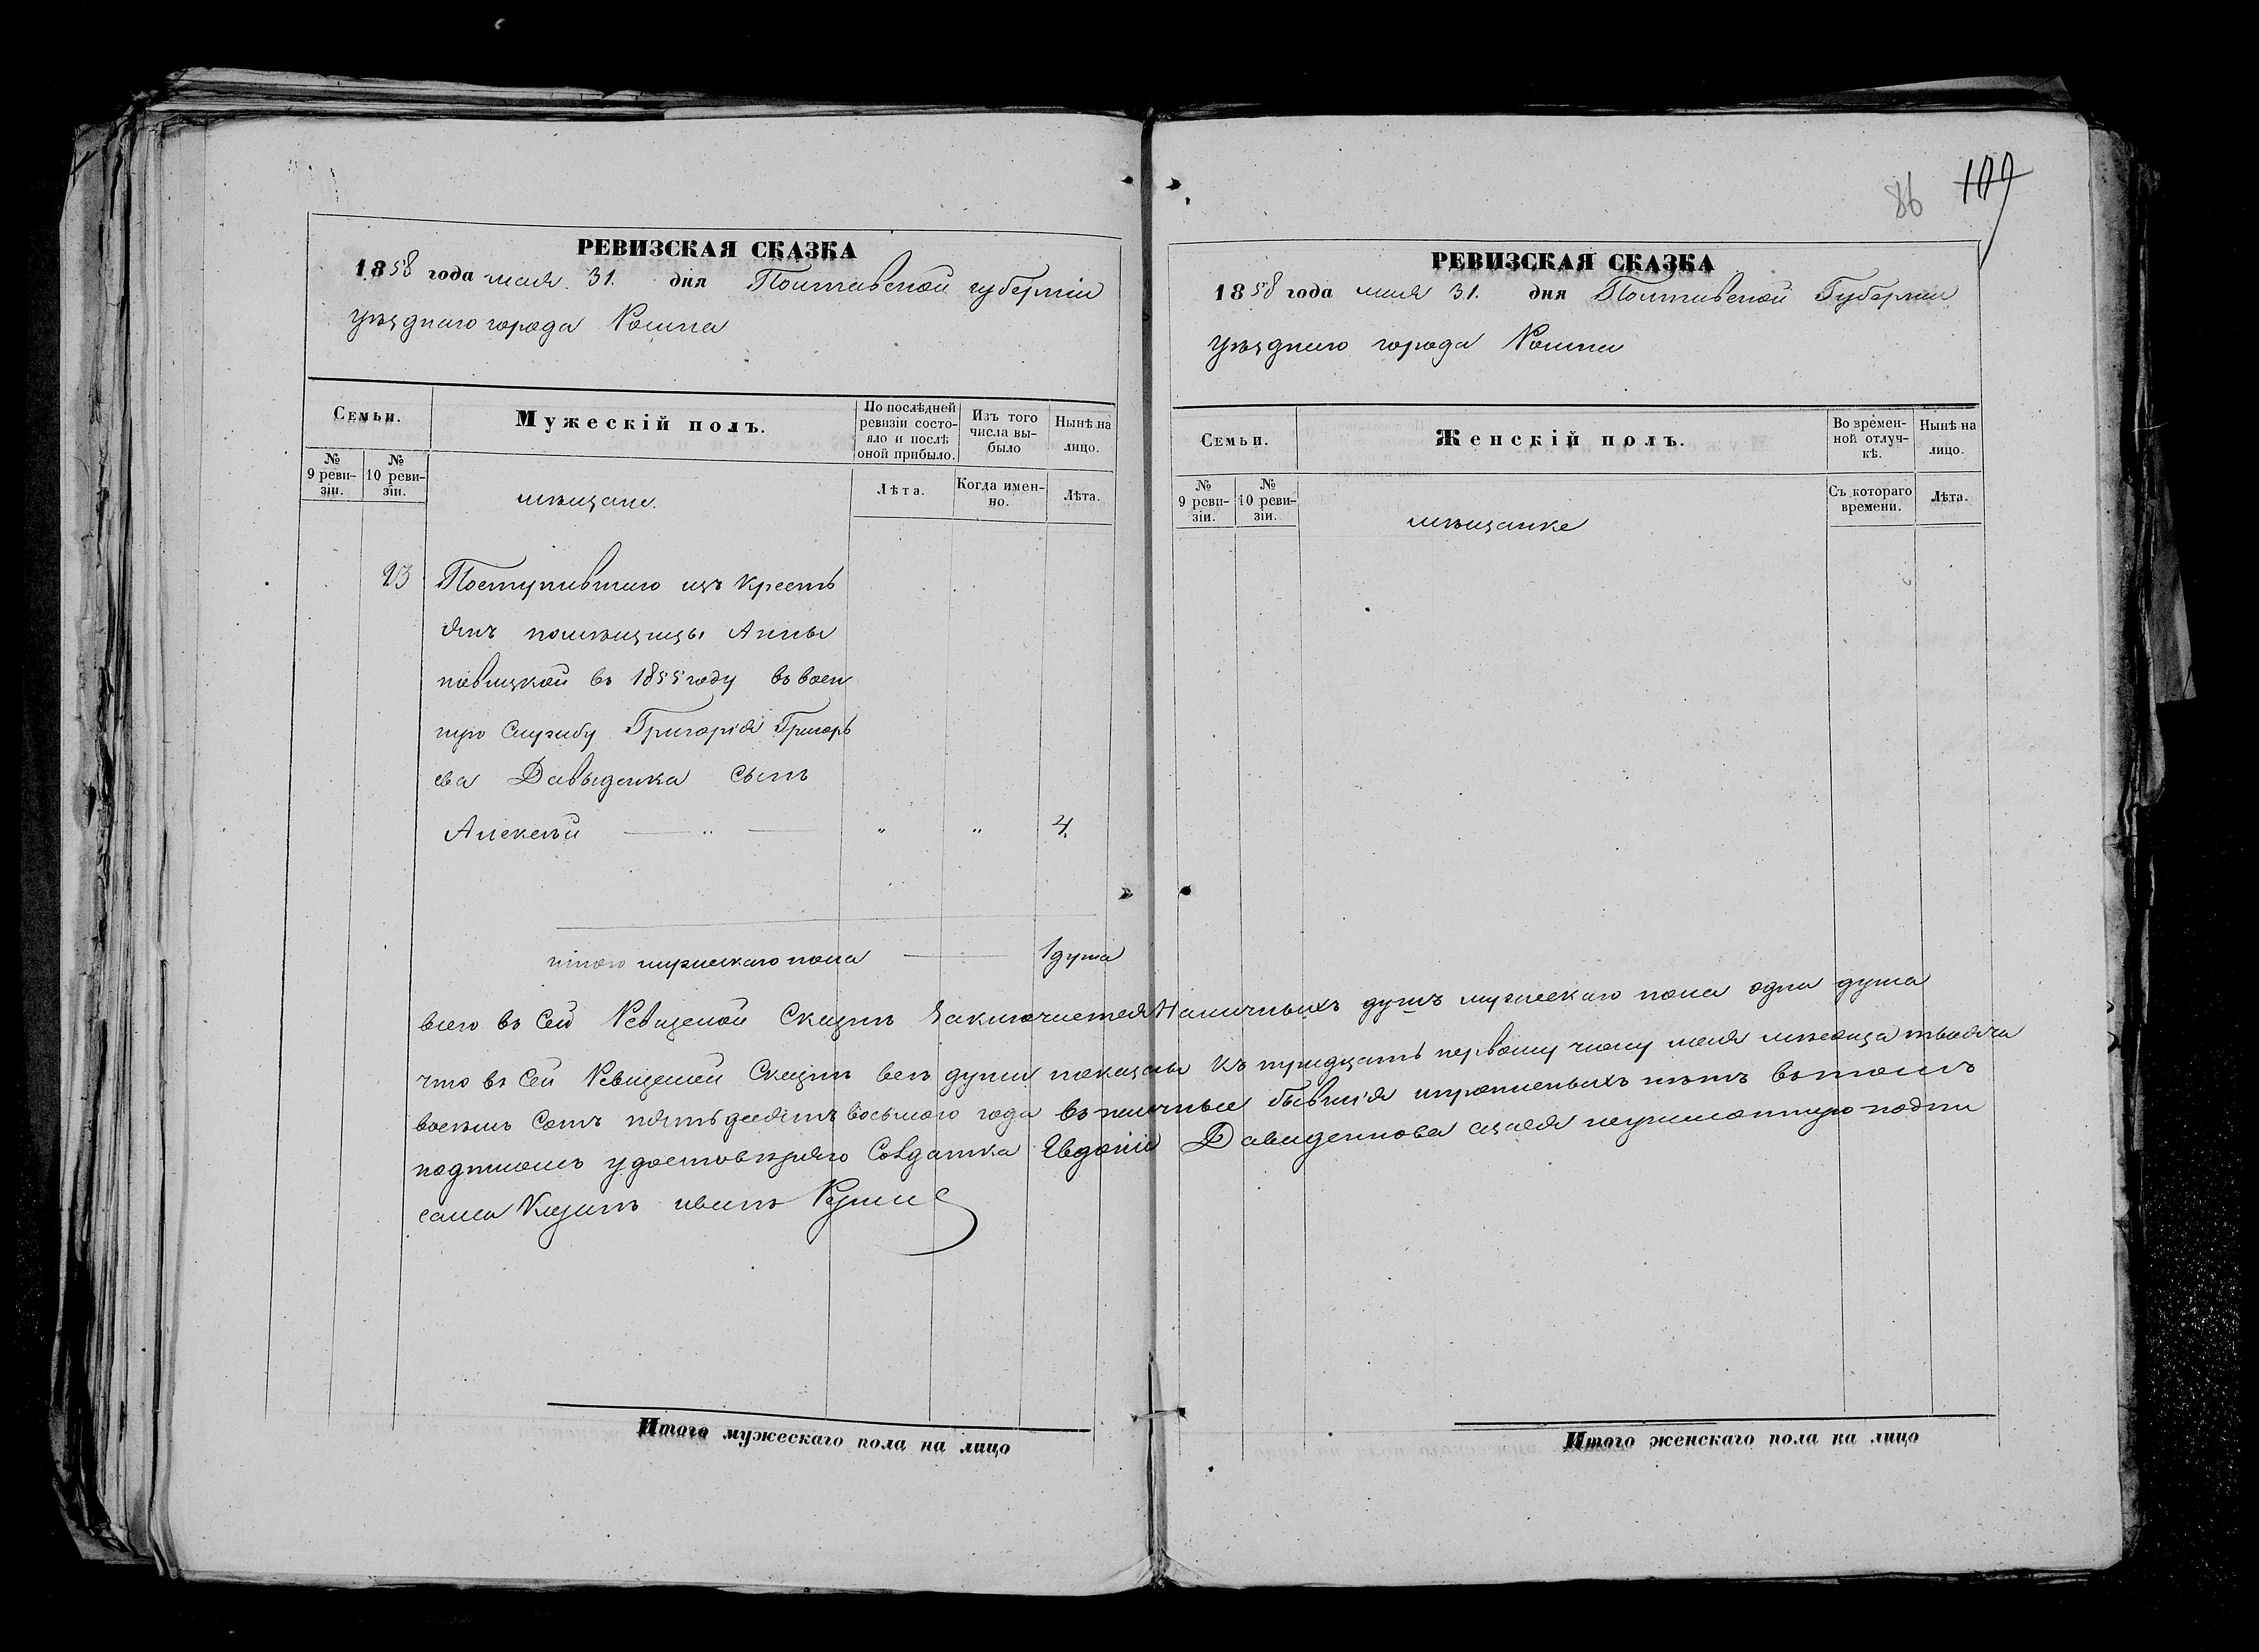 86 109
РЕВИЗСКАЯ СКАЗКА
1858 года мая 31. дня Полтавской губерніи
уѣзднаго города Ромна
Семьи.
Мужескій полъ.
По послѣдней ревизіи состояло и послѣ оной прибыло.
Изъ того числа выбыло
Нынѣ на лицо.
№ 9 ревизіи.
№ 10 ревизіи.
мѣщане.
Лѣта.
Когда именно.
Лѣта.
23 Поступившаго изъ кресть
янъ помѣщицы Анны
въ 1855 году въ воен
ную Службу Григорія Григорь
ева Давыденка Сынъ
Алексѣй — " — " " 4.
итого мужескаго пола — 1 душа
РЕВИЗСКАЯ СКАЗКА
1858 года мая 31. дня Полтавской Губерніи
уѣзднаго города Ромна
Семьи.
Женскій полъ.
Во временной отлучкѣ.
Нынѣ на лицо.
№ 9 ревизіи.
№ 10 ревизіи.
мѣщанке
Съ котораго времени.
Лѣта.
всего въ Сей Ревизской Сказкѣ Заключается Наличныхъ душъ мужескаго пола одна душа
что въ Сей Ревизской Сказкѣ всѣ души показаны къ тридцать первому числу мая мѣсяца тысяча
восемь Сотъ пятьдесятъ восьмого года въ наличные бывшія пропсеныхъ нѣтъ въ томъ
подписомъ удостовѣряю Солдатка Евдокія Давиденкова азася неграмотную подпи
салса иванъ
Итого мужескаго пола на лицо
Итого женскаго пола на лицо